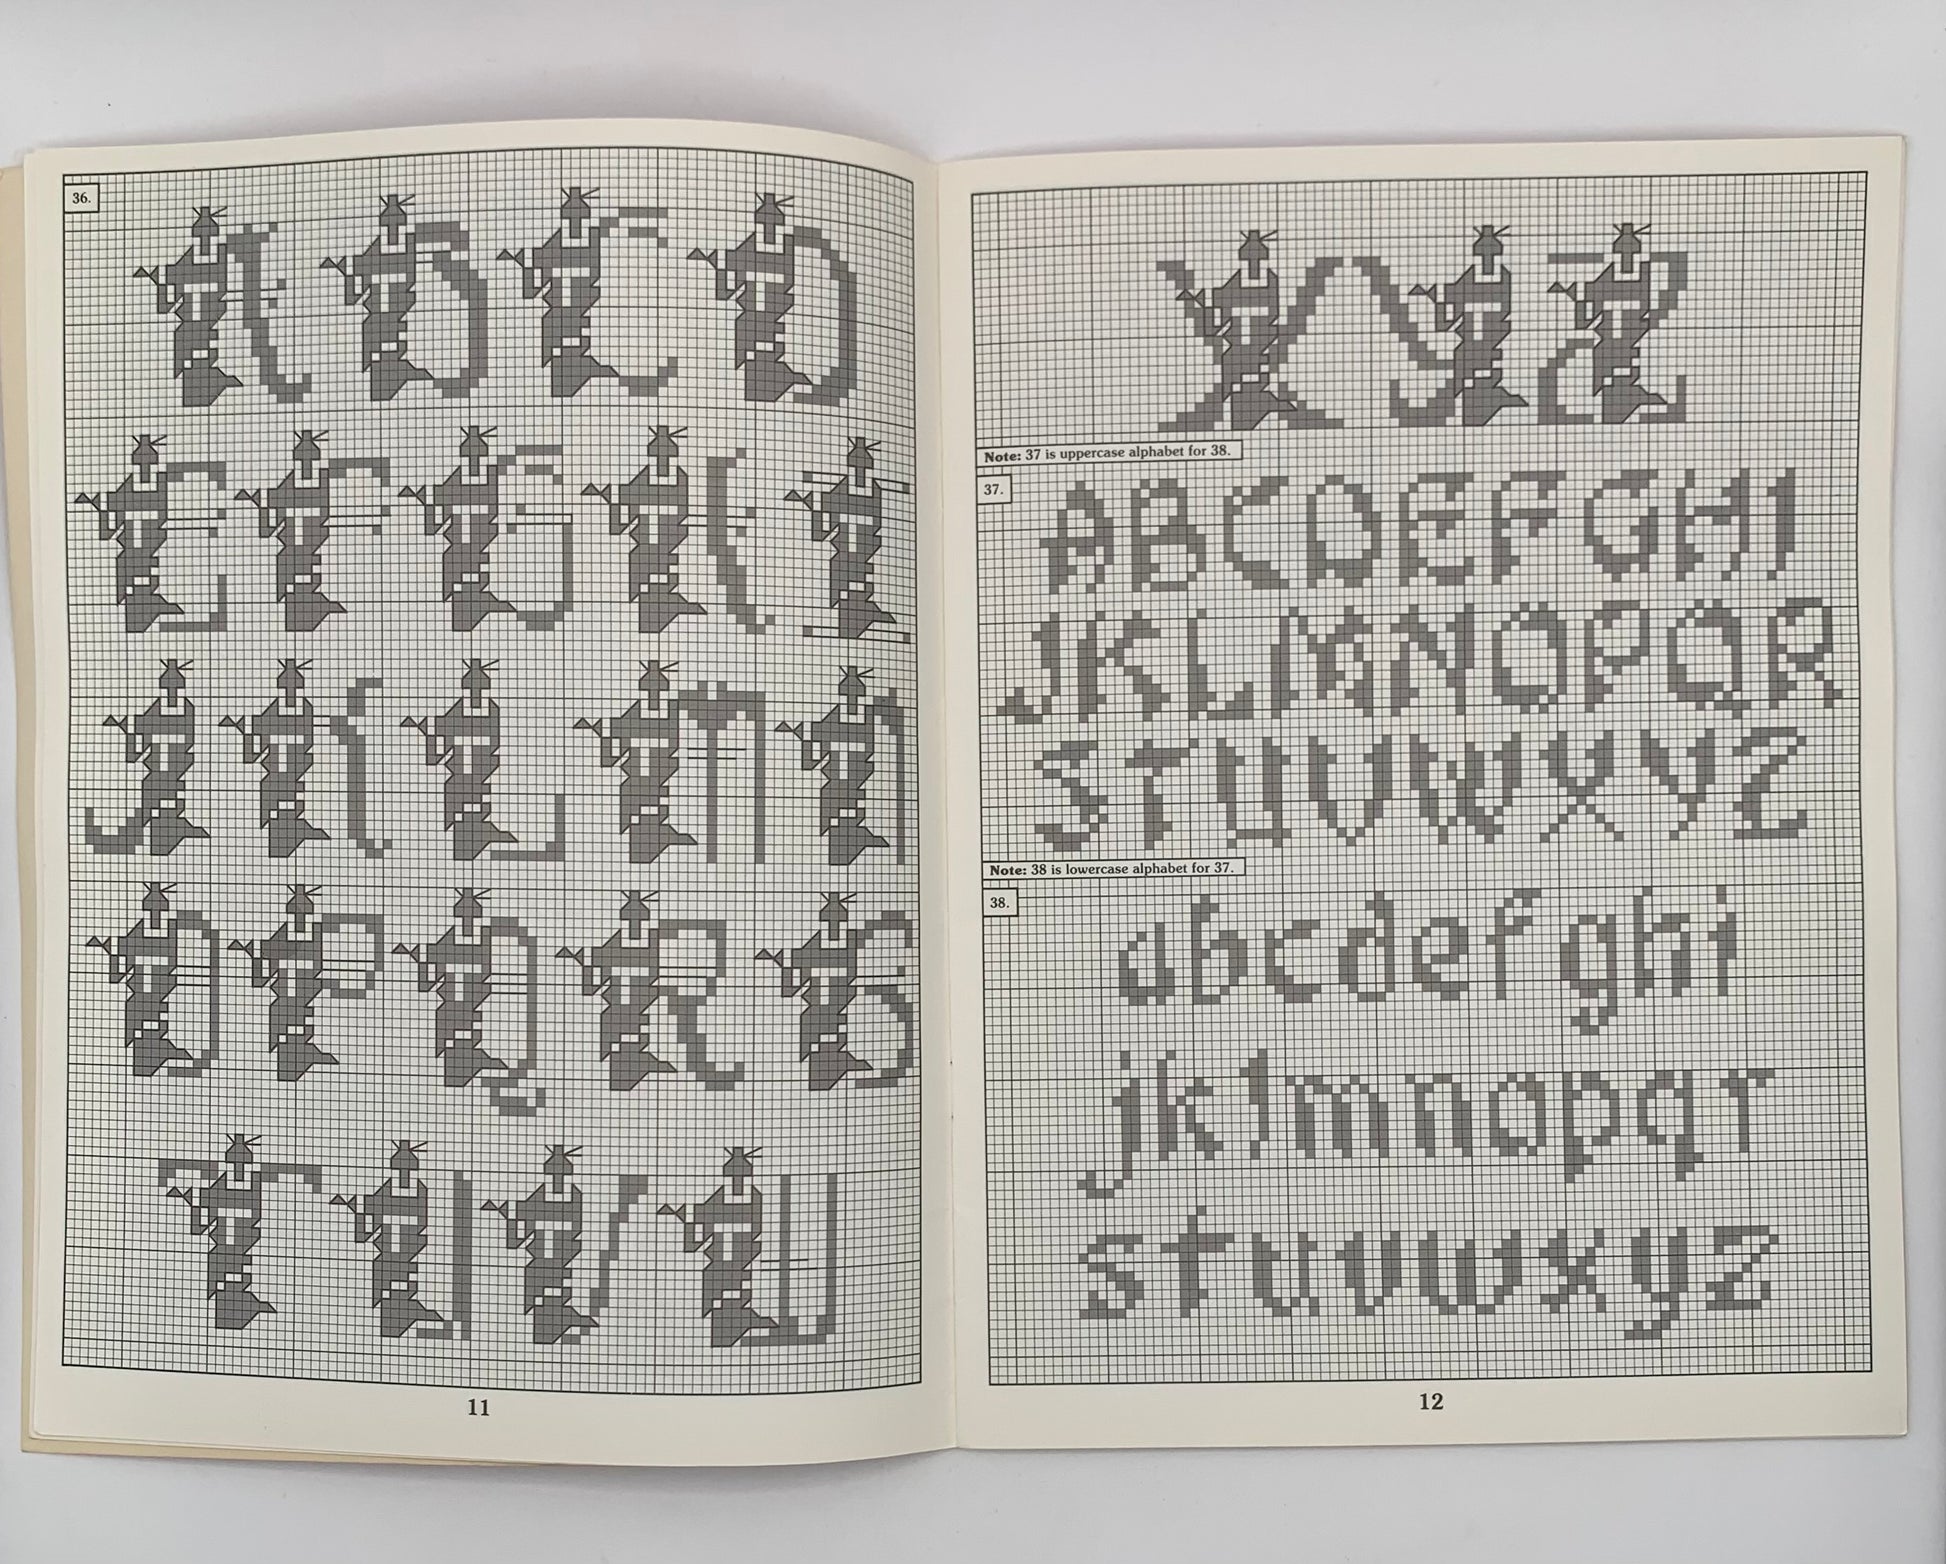 36.
A B C D
E F G H I
J K L M N
O P Q R S
T U V W
11
X Y Z
Note: 37 is uppercase alphabet for 38.
37.
A B C D E F G H I
J K L M N O P Q R
S T U V W X Y Z
Note: 38 is lowercase alphabet for 37.
38.
a b c d e f g h i
j k l m n o p q r
s t u v w x y z
12